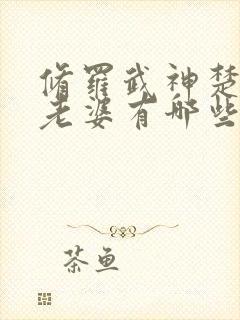 脩罗武神楚
老婆有哪些
茶鱼